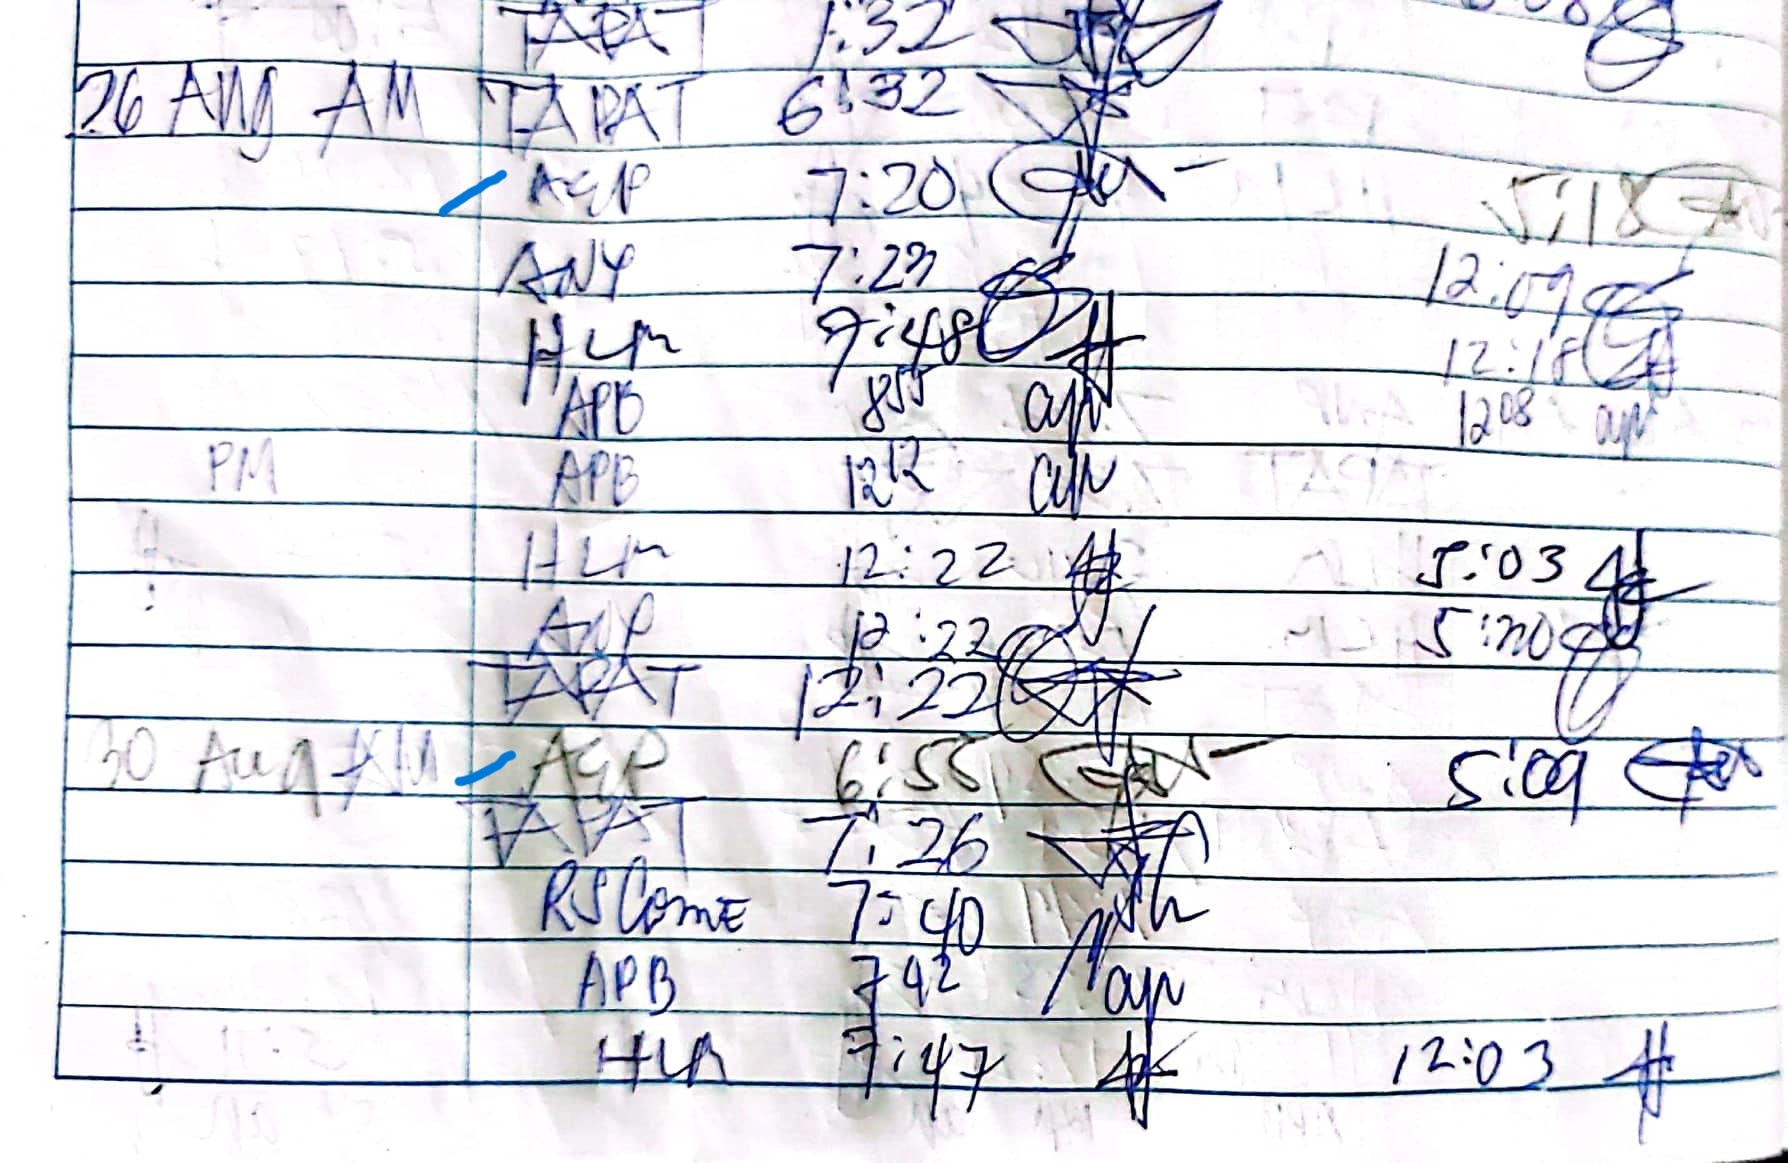 TAPAT 1:32
26 Aug AM TAPAT 6:32
AGP 7:20 5:18
ANY 7:23 12:09
HLM 7:48 12:18
APB 855 1208
PM APB 1212
HLM 12:22 5:03
12:22 5:20
TAPAT 12:22
30 Aug AM AGP 6:55 5:09
TAPAT 7:26
RSCome 7:40
APB 742
HLM 7:47 12:03